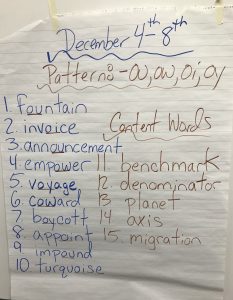 December 4th-8th
Patterns - ou, ow, oi, oy
1. fountain
2. invoice
3. announcement
4. empower
5. voyage
6. coward
7. boycott
8. appoint
9. impound
10. turquoise
Content Words
11. benchmark
12. denominator
13. planet
14. axis
15. migration